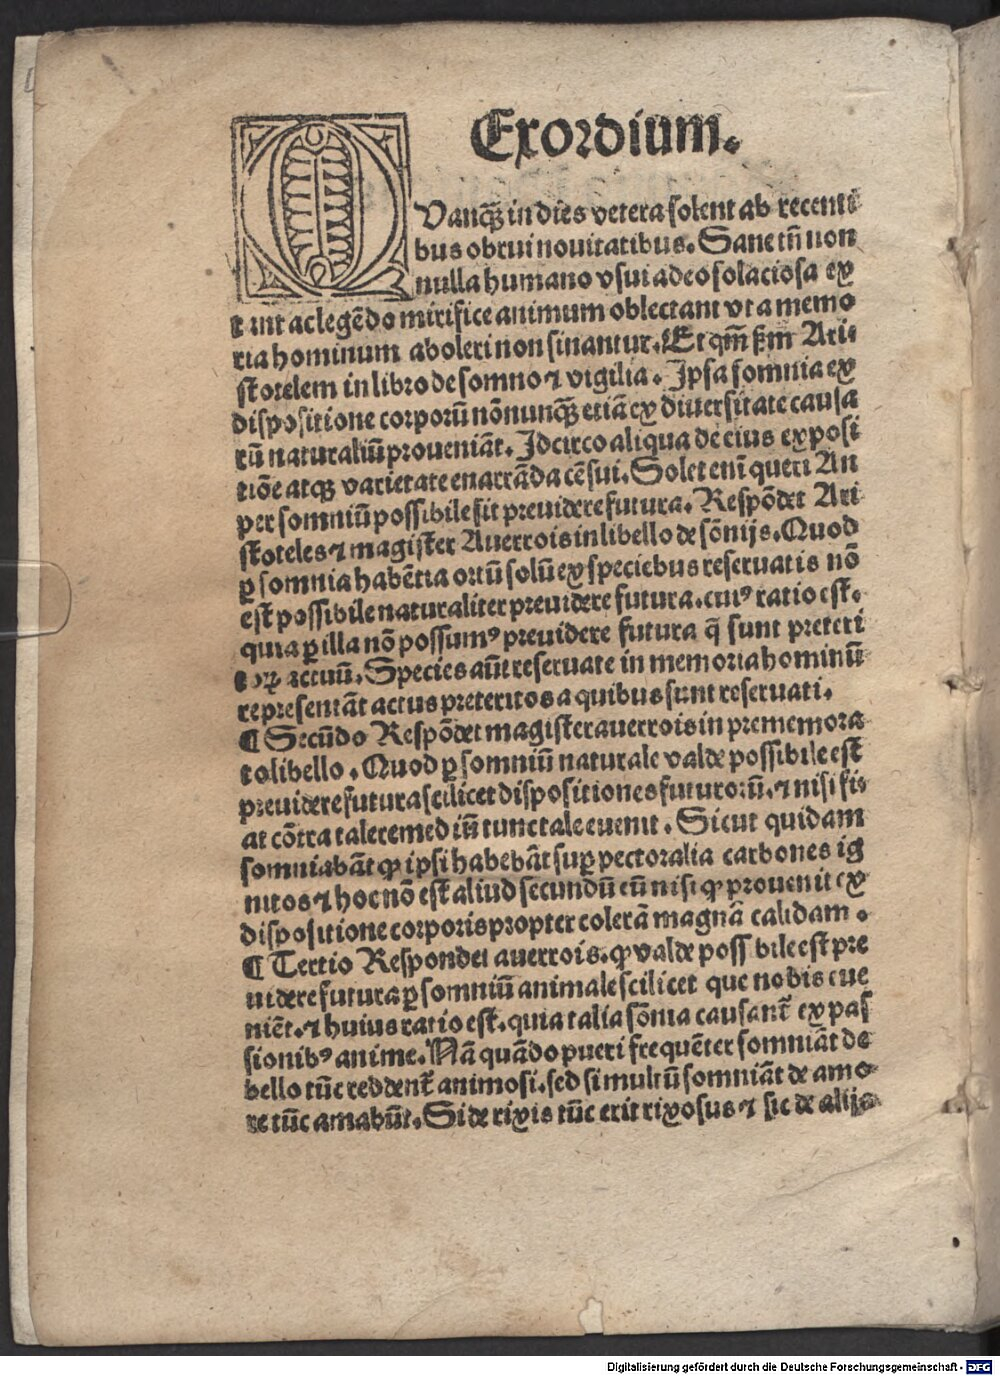 Exordium.
QVanq̃ꝫ in dies vetera solent ab recenti
bus obrui nouitatibus. Sane tñ non
nulla humano vsui adeo solaciosa ex
tant ac legẽdo mirifice animum oblectant vt a memo
ria hominum aboleri non sinantur. Et qm̃ ẜm Ari⸗
stotelem in libro de somno ⁊ vigilia. Ipsa somnia ex
dispositione corporũ nõnunq̃ꝫ etiã ex diuersitate causa
rũ naturaliũ proueniãt. Idcirco aliqua de eius exposi
tiõe atqꝫ varietate enarrãda cẽsui. Solet enĩ queri An
per somniũ possibile sit preuidere futura. Respõdet Ari
stoteles ⁊ magister Auerrois in libello de sõnijs. Quod
ꝑ somnia habẽtia ortũ solũ ex speciebus reseruatis nõ
est possibile naturaliter preuidere futura. cuiꝰ ratio est.
quia ꝑ illa nõ possumꝰ preuidere futura q̃ sunt preteri
toꝝ actuũ. Species aũt reseruate in memoria hominũ
representãt actus preteritos a quibus sunt reseruati.
¶ Secũdo Respõdet magister auerrois in prememora
to libello. Quod ꝑ somniũ naturale valde possibile est
preuidere futura scilicet dispositiones futurorũ. ⁊ nisi fi⸗
at cõtra tale remediũ tunc tale euenit. Sicut quidam
somniabãt ꝙ ipsi habebãt suꝑ pectoralia carbones ig
nitos ⁊ hoc nõ est aliud secundũ eũ nisi ꝙ prouenit ex
dispositione corporis propter colerã magnã calidam.
¶ Tertio Respondet auerrois. ꝙ valde possibile est pre
uidere futura ꝑ somniũ animale scilicet que nobis eue
niẽt. ⁊ huius ratio est. quia talia sõnia causant̃ ex pas
sionibꝰ anime. Nã quãdo pueri frequẽter somniãt de
bello tũc reddent̃ animosi. sed si multũ somniãt de amo⸗
re tũc amabũt. Si de rixis tũc erit rixosus ⁊ sic de alijs
Digitalisierung gefördert durch die Deutsche Forschungsgemeinschaft - DFG